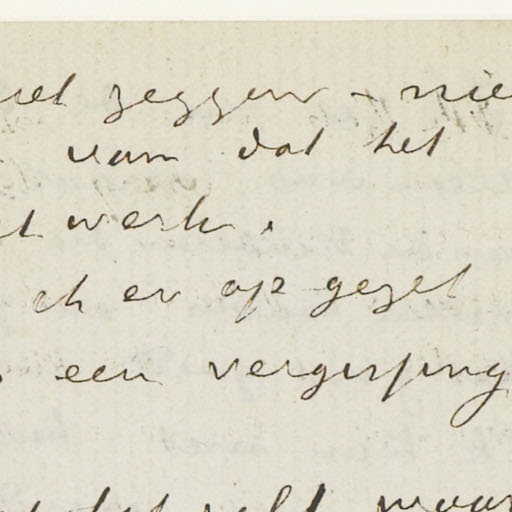 zeggen – nie
van dat het
t werk.
ik er op gezet
een vergissing
zelf maar